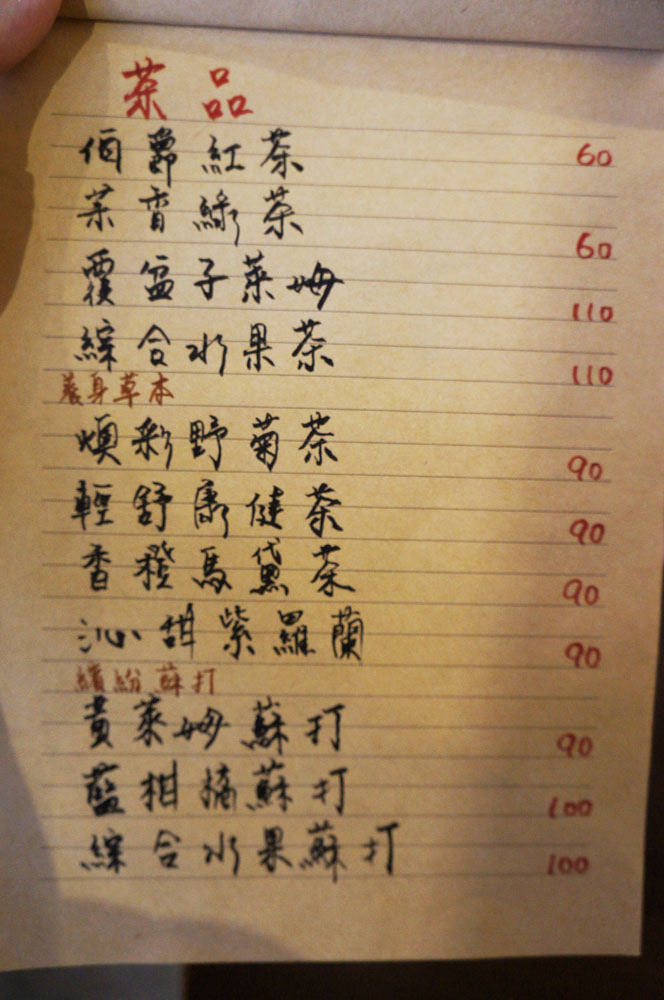 茶品
伯爵紅茶 60
茉香綠茶 60
覆盆子萊姆 110
綜合水果茶 110
養身草本
煥彩野菊茶 90
輕舒康健茶 90
香橙馬黛茶 90
沁甜紫羅蘭 90
繽紛蘇打
黃萊姆蘇打 90
藍柑橘蘇打 100
綜合水果蘇打 100